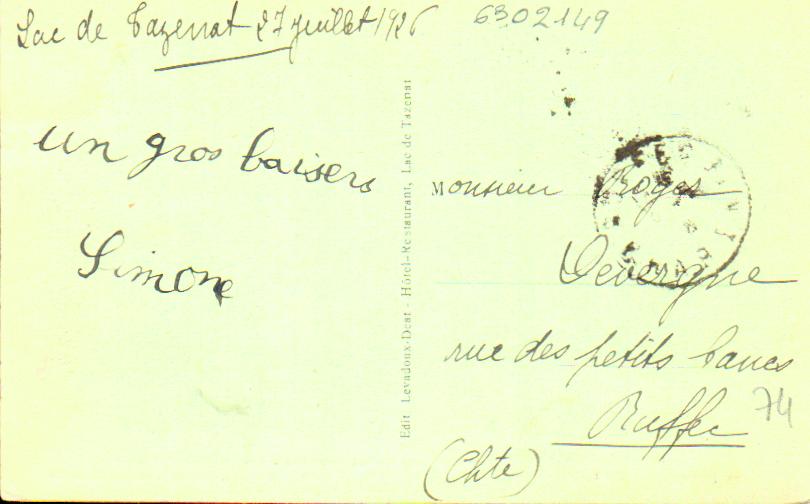 Lac de Tazenat 27 juillet 1926
6302149
un gros baisers
Simone
Edit Levadoux-Deat - Hôtel-Restaurant, Lac de Tazenat
Monsieur Roger
Devergne
rue des petits bancs
Ruffec
74
(Chte)